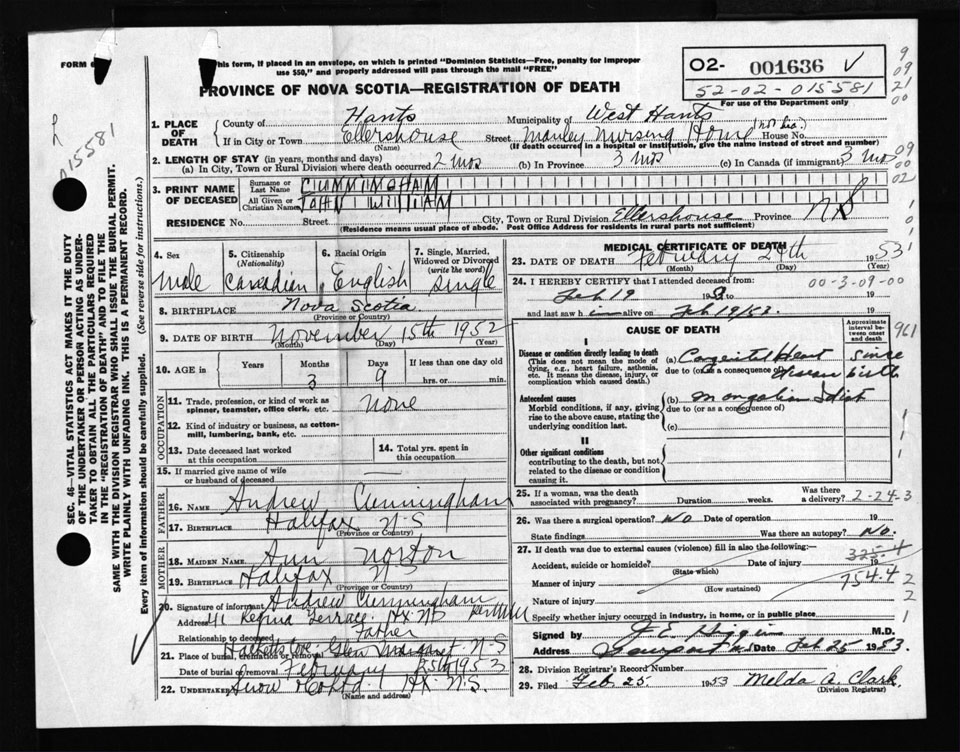 FORM 6
This form, if placed in an envelope, on which is printed "Dominion Statistics—Free, penalty for improper
use $50," and properly addressed will pass through the mail "FREE"
PROVINCE OF NOVA SCOTIA—REGISTRATION OF DEATH
O2- 001636 V
52-02-015581
For use of the Department only
1. PLACE OF DEATH
County of Hants Municipality of West Hants
If in City or Town Ellershouse Street Manley Nursing Home House No.
(Name) (If death occurred in a hospital or institution, give the name instead of street and number)
2. LENGTH OF STAY (in years, months and days)
(a) In City, Town or Rural Division where death occurred 2 mos (b) In Province 3 mos (c) In Canada (if immigrant) 3 mos
3. PRINT NAME OF DECEASED
Surname or Last Name CUNNINGHAM
All Given or Christian Names JOHN WILLIAM
RESIDENCE No. Street City, Town or Rural Division Ellershouse Province NS
(Residence means usual place of abode. Post Office Address for residents in rural parts not sufficient)
4. Sex Male
5. Citizenship (Nationality) Canadian
6. Racial Origin English
7. Single, Married, Widowed or Divorced (write the word) Single
8. BIRTHPLACE Nova Scotia
(Province or Country)
9. DATE OF BIRTH November 15th 1952
(Month) (Day) (Year)
10. AGE in Years Months 3 Days 9 If less than one day old
hrs. or min.
OCCUPATION
11. Trade, profession, or kind of work as spinner, teamster, office clerk, etc. None
12. Kind of industry or business, as cotton-mill, lumbering, bank, etc.
13. Date deceased last worked at this occupation
14. Total yrs. spent in this occupation
15. If married give name of wife or husband of deceased
FATHER
16. Name Andrew Cunningham
17. BIRTHPLACE Halifax N.S
(Province or Country)
MOTHER
18. MAIDEN NAME Ann Norton
19. BIRTHPLACE Halifax NS
(Province or Country)
20. Signature of informant Andrew Cunningham
Address 41 Regina Terrace Hx NS
Relationship to deceased Father
21. Place of burial, cremation or removal Hacketts Cove Glen Margaret N.S
Date of burial or removal February 25th 1953
22. Undertaker Snow & Co Ltd Hx N.S.
(Name and address)
MEDICAL CERTIFICATE OF DEATH
23. DATE OF DEATH February 24th 1953
(Month) (Day) (Year)
24. I HEREBY CERTIFY that I attended deceased from: 00-3-09-00
Feb 19 19 to 19
and last saw him alive on Feb 19/53. 19
CAUSE OF DEATH
Approximate interval between onset and death
I
Disease or condition directly leading to death
(This does not mean the mode of dying, e.g., heart failure, asthenia, etc. It means the disease, injury, or complication which caused death.)
(a) Congenital Heart Disease since birth
due to (or as a consequence of)
Antecedent causes
Morbid conditions, if any, giving rise to the above cause, stating the underlying condition last.
(b) Mongolian Idiot
due to (or as a consequence of)
(c)
II
Other significant conditions
contributing to the death, but not related to the disease or condition causing it.
25. If a woman, was the death associated with pregnancy? Duration weeks. Was there a delivery? 2-24-3
26. Was there a surgical operation? No Date of operation 19
State findings Was there an autopsy? No.
27. If death was due to external causes (violence) fill in also the following:—
Accident, suicide or homicide? Date of injury 19
(State which) 325.4
Manner of injury 754.4
(How sustained)
Nature of injury
Specify whether injury occurred in industry, in home, or in public place
Signed by J E Higgins M.D.
Address Newport N.S Date Feb 25 1953.
28. Division Registrar's Record Number
29. Filed Feb 25. 1953 Melda A. Clark.
(Division Registrar)
SEC. 46—VITAL STATISTICS ACT MAKES IT THE DUTY
OF THE UNDERTAKER OR PERSON ACTING AS UNDER-
TAKER TO OBTAIN ALL THE PARTICULARS REQUIRED
IN THE "REGISTRATION OF DEATH" AND TO FILE THE
SAME WITH THE DIVISION REGISTRAR WHO SHALL ISSUE THE BURIAL PERMIT.
WRITE PLAINLY WITH UNFADING INK. THIS IS A PERMANENT RECORD.
Every item of information should be carefully supplied. (See reverse side for instructions.)
015581
961